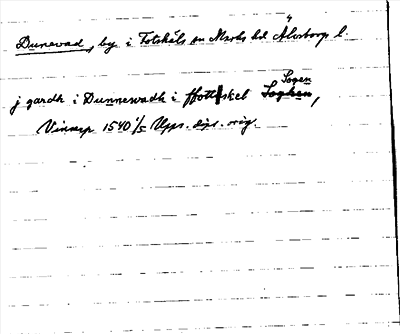 Dunevad, by i Fotskäls sn Marks hd Älvsborgs l.
j gardh i Dunnewadh i ffottskel Sogen Soghen,
Vinarp 1540 1/5 Upps. dipl. orig.